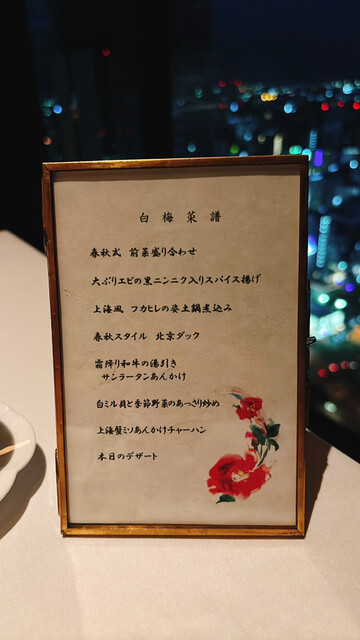 白梅菜譜
春秋式 前菜盛り合わせ
大ぶりエビの黒ニンニク入りスパイス揚げ
上海風 フカヒレの姿土鍋煮込み
春秋スタイル 北京ダック
霜降り和牛の湯引き
サンラータンあんかけ
白ミル貝と季節野菜のあっさり炒め
上海蟹ミソあんかけチャーハン
本日のデザート